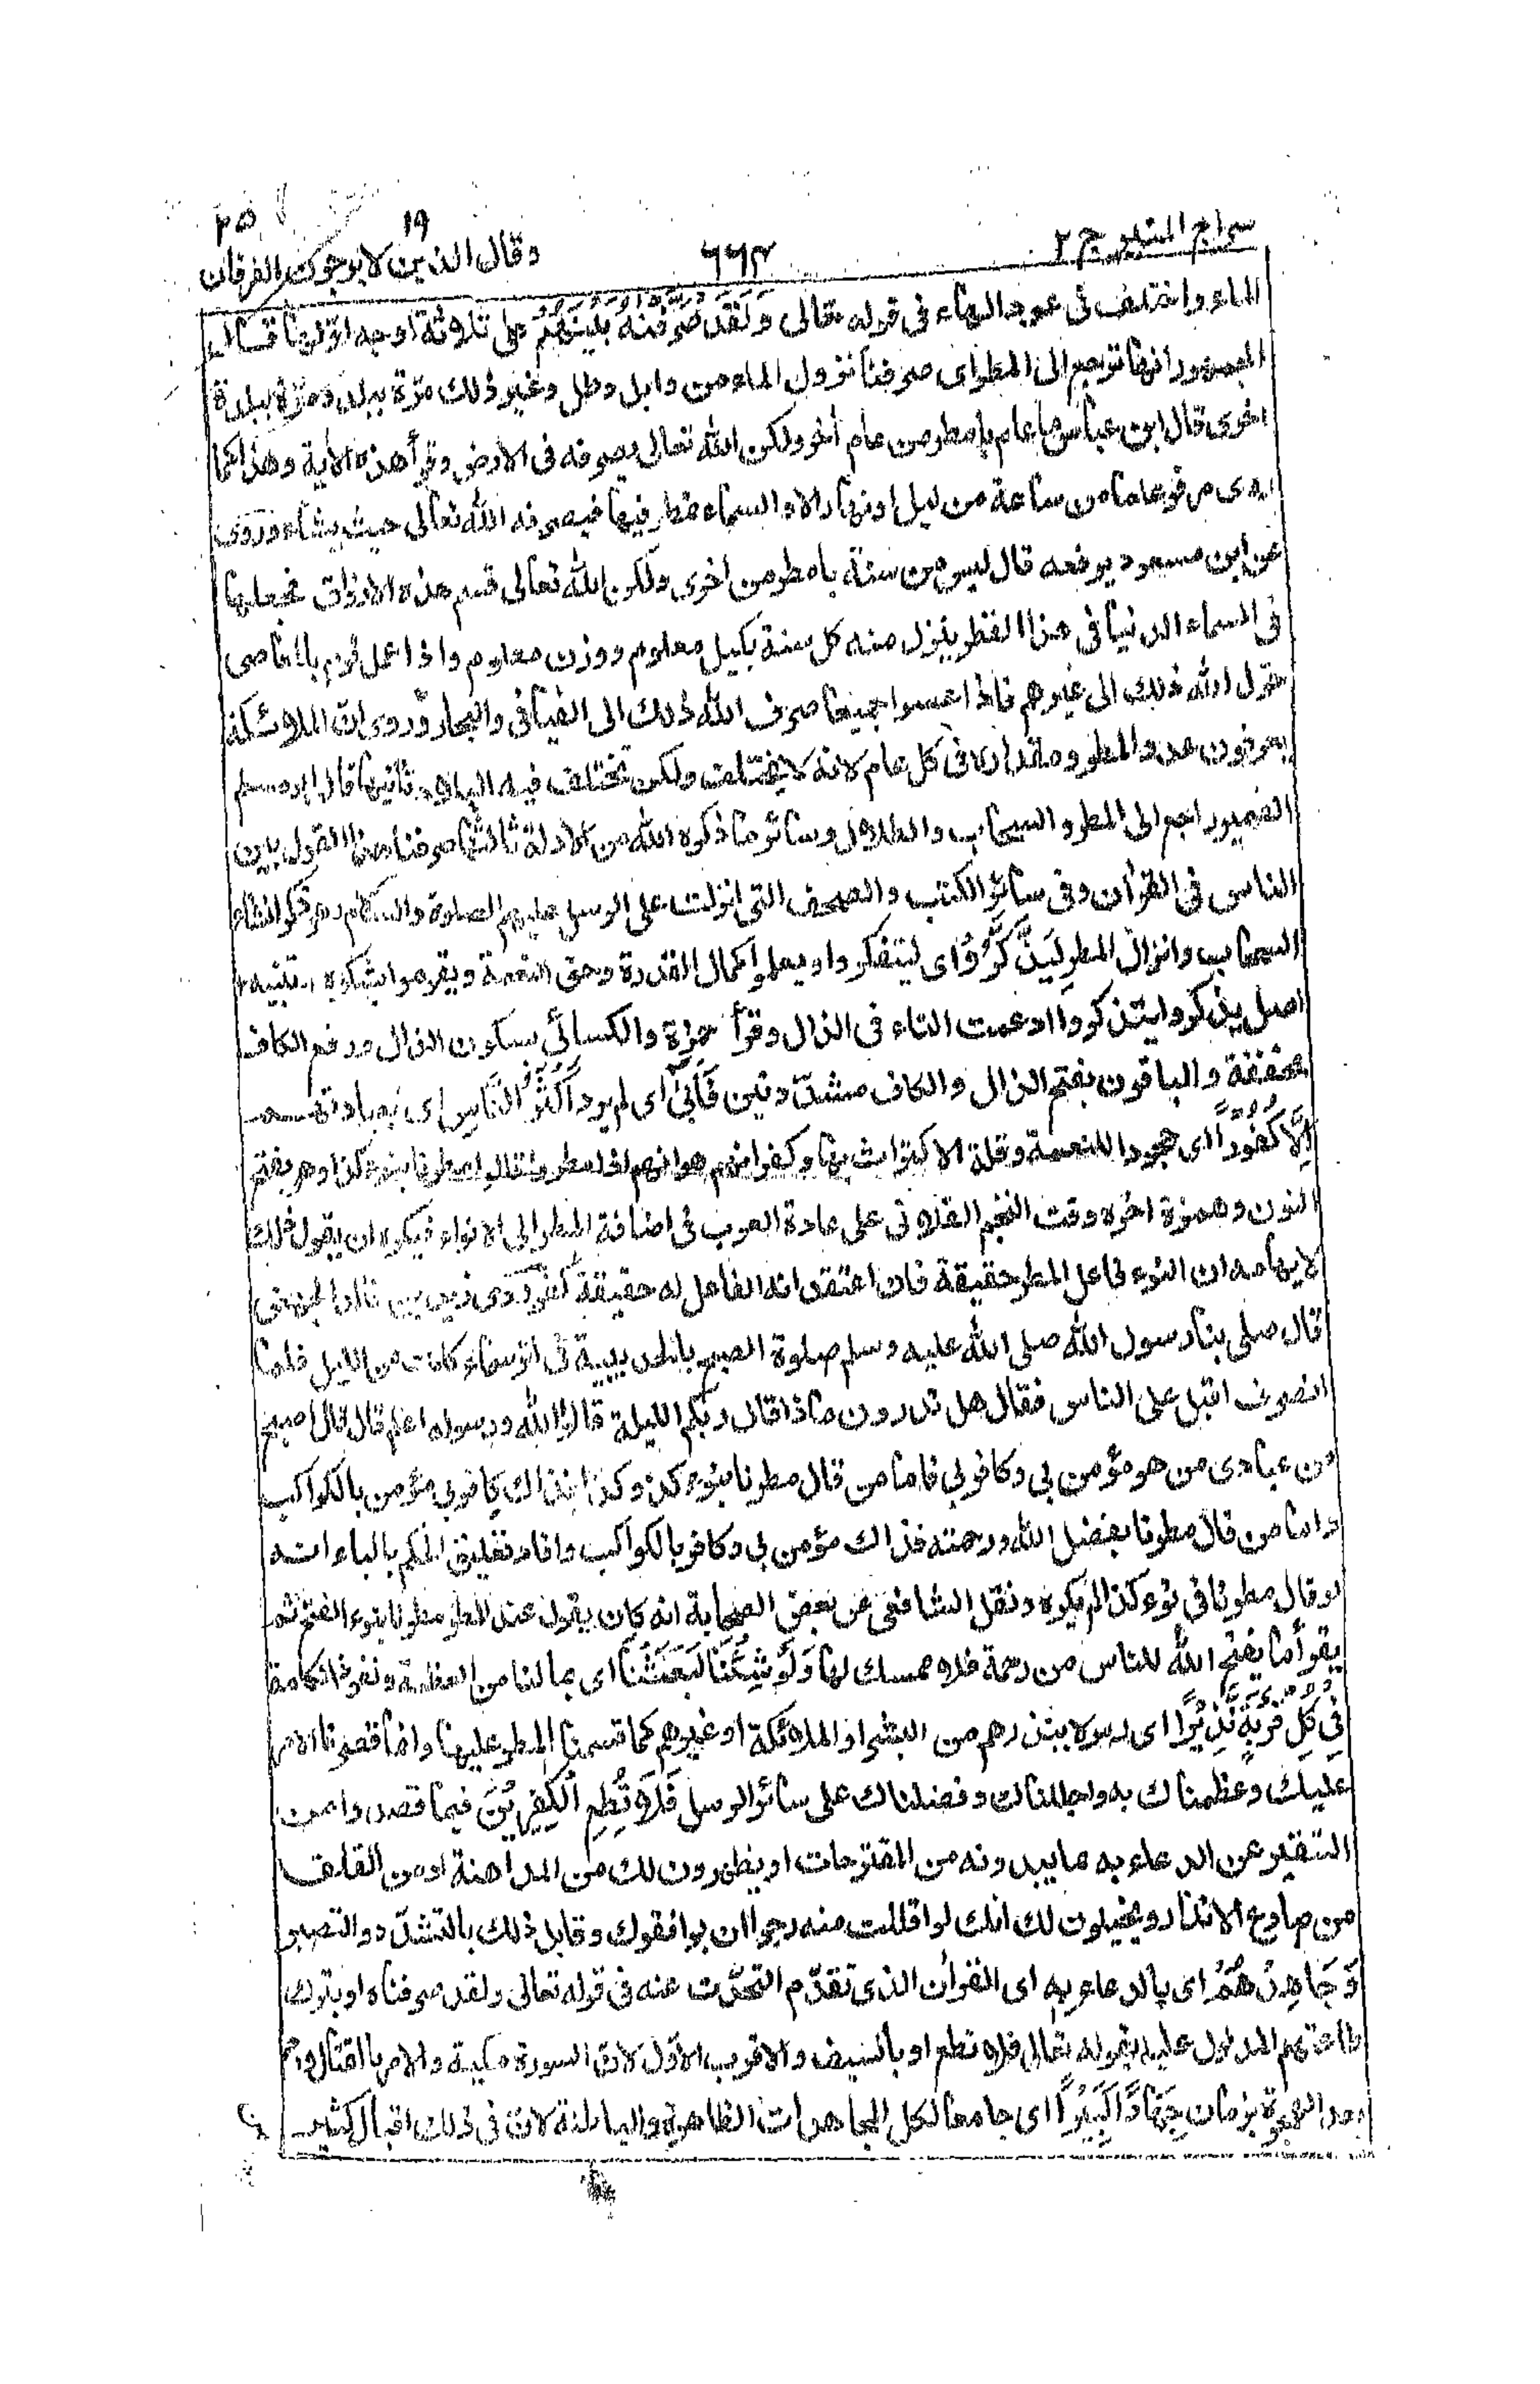 سراج المنير ج ٢
٦٦٣
وقال الذين لا يرجون الفرقان
١٩
٢٥
الماء واختلف فى عود الهاء فى قوله تعالى وَلَقَدْ صَرَّفْنٰهُ بَيْنَهُمْ على ثلاثة اوجه اوّلها قال
الجمهور انها ترجع الى المطر اى صرفنا نزول الماء من وابل وطل وغير ذلك مرّة ببلد ومرّة ببلدة
اخرى قال ابن عباس ما عام بامطر من عام أخر ولكن الله تعالى يصرفه فى الارض وقرأ هذه الأية وهذا كما
روى مرفوعا ما من ساعة من ليل او نهار الا والسماء تمطر فيها فيصرفه الله تعالى حيث يشاء وروى
عن ابن مسعود يرفعه قال ليس من سنة بامطر من اخرى ولكن الله تعالى قسم هذه الارزاق فجعلها
فى السماء الدنيا فى هذا القطر ينزل منه كل سنة بكيل معلوم ووزن معلوم واذا عمل قوم بالمعاصى
حوّل الله ذلك الى غيرهم فاذا عصوا جميعا صرف الله ذلك الى الفيافى والبحار وروى انّ الملائكة
يعرفون عدد المطر ومقداره فى كل عام لانه لا يختلف ولكن تختلف فيه البلاد ثانيها قال ابو مسلم
الضمير راجع الى المطر والسحاب والظلال وسائر ما ذكره الله من الادلة ثالثها صرفنا هذا القول بين
الناس فى القرأن وفى سائر الكتب والصحف التى انزلت على الرسل عليهم الصلوة والسلام وهو ذكر انشاء
السحاب وانزال المطر لِيَذَّكَّرُوْا اى ليتفكروا ويعلموا كمال القدرة وحق النعمة ويقوموا بشكره تنبيه
اصل يذكروا يتذكروا ادغمت التاء فى الذال وقرأ حمزة والكسائى بسكون الذال ورفع الكاف
مخففة والباقون بفتح الذال والكاف مشدّدتين فَاَبٰٓى اى لم يرد اَكْثَرُ النَّاسِ اى بعبادتهم
اِلَّا كُفُوْرًا اى جحودا للنعمة وقلة الاكتراث بها وكفرانهم هو انهم اذا مطروا قالوا مطرنا بنوء كذا وهو بفتح
النون وهمزة اخره وقت النجم الفلانى على عادة العرب فى اضافة المطر الى الانواء فيكره ان يقول ذلك
لايهامه ان النوء فاعل المطر حقيقة فان اعتقد انه الفاعل له حقيقة كفر روى زيد بن خالد الجهنى
قال صلى بنا رسول الله صلى الله عليه وسلم صلوة الصبح بالحديبية فى اثر سماء كانت من الليل فلما
انصرف اقبل على الناس فقال هل تدرون ماذا قال ربكم الليلة قالوا الله ورسوله اعلم قال قال اصبح
من عبادى من هو مؤمن بى وكافر بى فاما من قال مطرنا بنوء كذا وكذا فذاك كافر بى مؤمن بالكواكب
واما من قال مطرنا بفضل الله ورحمته فذاك مؤمن بى وكافر بالكواكب وافاد تعليق الحكم بالباء انه
لو قال مطرنا فى نوء كذا لم يكره ونقل الشافعى عن بعض الصحابة انه كان يقول عند المطر مطرنا بنوء الفتح ثم
يقرأ ما يفتح الله للناس من رحمة فلا ممسك لها وَلَوْ شِئْنَا لَبَعَثْنَا اى بما لنا من العظمة ونفوذ الكلمة
فِىْ كُلِّ قَرْيَةٍ نَّذِيْرًا اى رسولا ينذرهم من البشر او الملائكة او غيرهم كما قسمنا المطر عليها وانما قصرنا الامر
عليك وعظمناك به واجللناك وفضلناك على سائر الرسل فَلَا تُطِعِ الْكٰفِرِيْنَ فيما قصدوا من
التقتير عن الدعاء به ما يبدونه من المقترحات او يظهرون لك من المداهنة او من القلق
من صادع الانذار ويخيلون لك انك لو اقللت منه رجوا ان يوافقوك وقابل ذلك بالتشدّد والتصبر
وَجَاهِدْهُمْ اى بالدعاء بِهٖ اى القرأن الذى تقدّم التحدّث عنه فى قوله تعالى ولقد صرفناه او بترك
طاعتهم المدلول عليه بقوله تعالى فلا تطع او بالسيف والاقرب الاوّل لانّ السورة مكية والامر بالقتال ورد
بعد الهجرة بزمان جِهَادًا كَبِيْرًا اى جامعا لكل المجاهدات الظاهرة والباطنة لانّ فى ذلك اقبال كثير